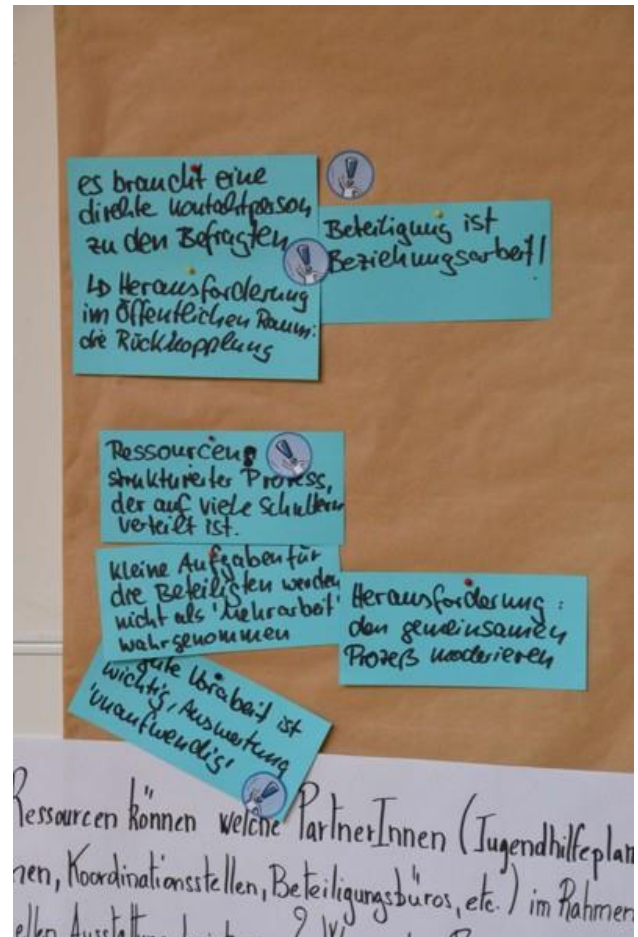 es braucht eine
direkte Kontaktperson
zu den Befragten
↳ Herausforderung
im öffentlichen Raum:
die Rückkopplung
Beteiligung ist
Beziehungsarbeit!
Ressourcen
strukturierter Prozess,
der auf viele Schultern
verteilt ist.
kleine Aufgaben für
die Beteiligten werden
nicht als 'Mehrarbeit'
wahrgenommen
Herausforderung:
den gemeinsamen
Prozeß moderieren
gute Vorarbeit ist
wichtig, Auswertung
'unaufwendig'
Ressourcen können welche PartnerInnen (Jugendhilfeplan
nen, Koordinationsstellen, Beteiligungsbüros, etc.) im Rahmen